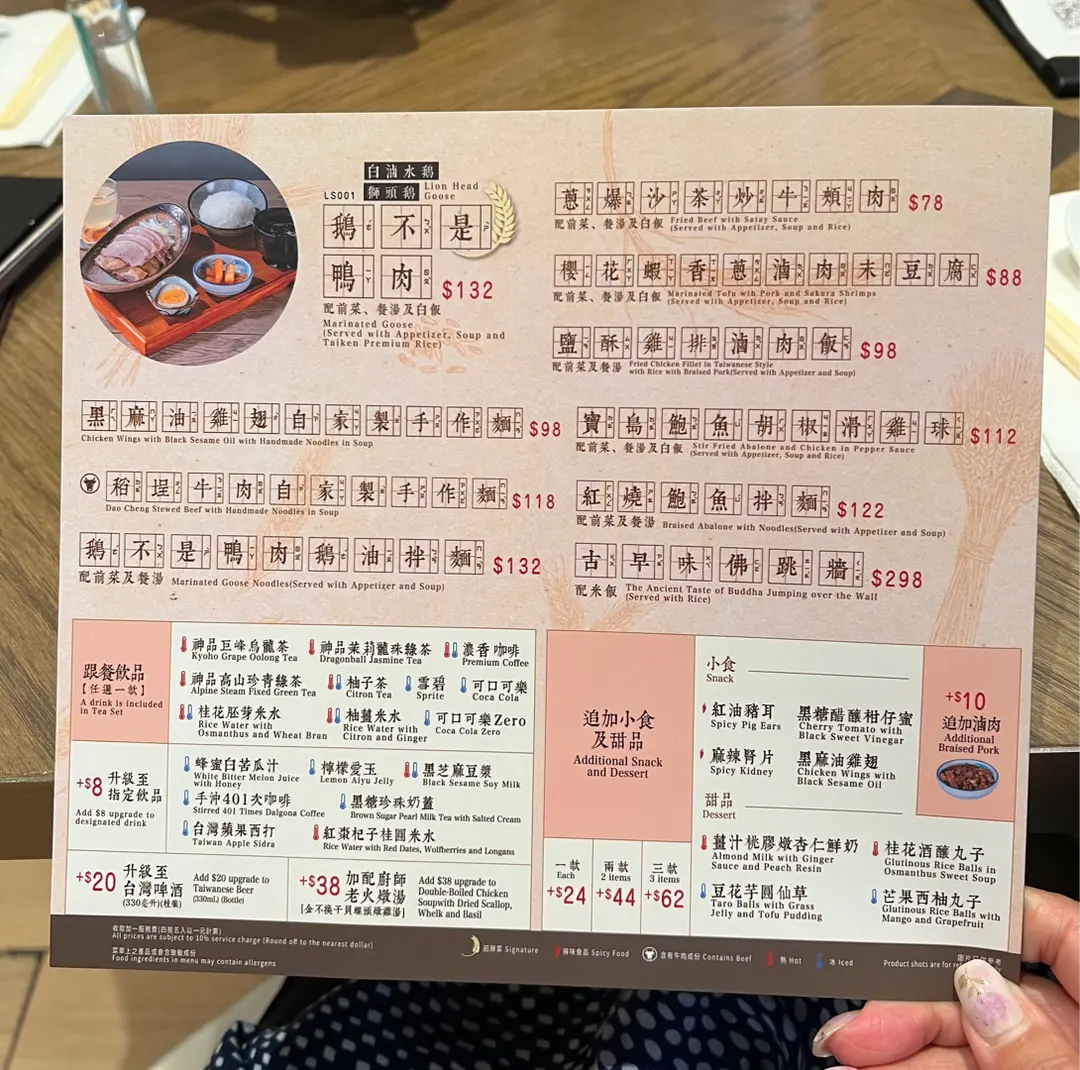 白滷水鵝
LS001 獅頭鵝 Lion Head Goose
鵝不是
鴨肉 $132
配前菜、餐湯及白飯
Marinated Goose
(Served with Appetizer, Soup and
Taiken Premium Rice)
黑麻油雞翅自家製手作麵 $98
Chicken Wings with Black Sesame Oil with Handmade Noodles in Soup
稻埕牛肉自家製手作麵 $118
Dao Cheng Stewed Beef with Handmade Noodles in Soup
鵝不是鴨肉鵝油拌麵 $132
配前菜及餐湯 Marinated Goose Noodles(Served with Appetizer and Soup)
蔥爆沙茶炒牛頰肉 $78
配前菜、餐湯及白飯 Fried Beef with Satay Sauce
(Served with Appetizer, Soup and Rice)
櫻花蝦香蔥滷肉末豆腐 $88
配前菜、餐湯及白飯 Marinated Tofu with Pork and Sakura Shrimps
(Served with Appetizer, Soup and Rice)
鹽酥雞排滷肉飯 $98
配前菜及餐湯 Fried Chicken Fillet in Taiwanese Style
with Rice with Braised Pork(Served with Appetizer and Soup)
寶島鮑魚胡椒滑雞球 $112
配前菜、餐湯及白飯 Stir Fried Abalone and Chicken in Pepper Sauce
(Served with Appetizer, Soup and Rice)
紅燒鮑魚拌麵 $122
配前菜及餐湯 Braised Abalone with Noodles(Served with Appetizer and Soup)
古早味佛跳牆 $298
配米飯 The Ancient Taste of Buddha Jumping over the Wall
(Served with Rice)
跟餐飲品
【任選一款】
A drink is included
in Tea Set
神品巨峰烏龍茶 神品茉莉龍珠綠茶 濃香咖啡
Kyoho Grape Oolong Tea Dragonball Jasmine Tea Premium Coffee
神品高山珍青綠茶 柚子茶 雪碧 可口可樂
Alpine Steam Fixed Green Tea Citron Tea Sprite Coca Cola
桂花胚芽米水 柚薑米水 可口可樂Zero
Rice Water with Osmanthus and Wheat Bran Rice Water with Citron and Ginger Coca Cola Zero
+$8 升級至
指定飲品
Add $8 upgrade to
designated drink
蜂蜜白苦瓜汁 檸檬愛玉 黑芝麻豆漿
White Bitter Melon Juice with Honey Lemon Aiyu Jelly Black Sesame Soy Milk
手沖401次咖啡 黑糖珍珠奶蓋
Stirred 401 Times Dalgona Coffee Brown Sugar Pearl Milk Tea with Salted Cream
台灣蘋果西打 紅棗杞子桂圓米水
Taiwan Apple Sidra Rice Water with Red Dates, Wolfberries and Longans
+$20 升級至
台灣啤酒
(330毫升)(枝裝)
Add $20 upgrade to
Taiwanese Beer
(330mL) (Bottle)
+$38 加配廚師
老火燉湯
[金不換干貝螺頭燉雞湯]
Add $38 upgrade to
Double-Boiled Chicken
Soupwith Dried Scallop,
Whelk and Basil
追加小食
及甜品
Additional Snack
and Dessert
一款 兩款 三款
Each 2 items 3 items
+$24 +$44 +$62
小食
Snack
紅油豬耳 黑糖醋釀柑仔蜜
Spicy Pig Ears Cherry Tomato with Black Sweet Vinegar
麻辣腎片 黑麻油雞翅
Spicy Kidney Chicken Wings with Black Sesame Oil
甜品
Dessert
薑汁桃膠燉杏仁鮮奶 桂花酒釀丸子
Almond Milk with Ginger Sauce and Peach Resin Glutinous Rice Balls in Osmanthus Sweet Soup
豆花芋圓仙草 芒果西柚丸子
Taro Balls with Grass Jelly and Tofu Pudding Glutinous Rice Balls with Mango and Grapefruit
+$10
追加滷肉
Additional
Braised Pork
收取加一服務費(四捨五入以一元計算)
All prices are subject to 10% service charge (Round off to the nearest dollar)
菜單上之產品或會含致敏成份
Food ingredients in menu may contain allergens
招牌菜 Signature 辣味食品 Spicy Food 含有牛肉成份 Contains Beef 熱 Hot 冰 Iced
Product shots are for